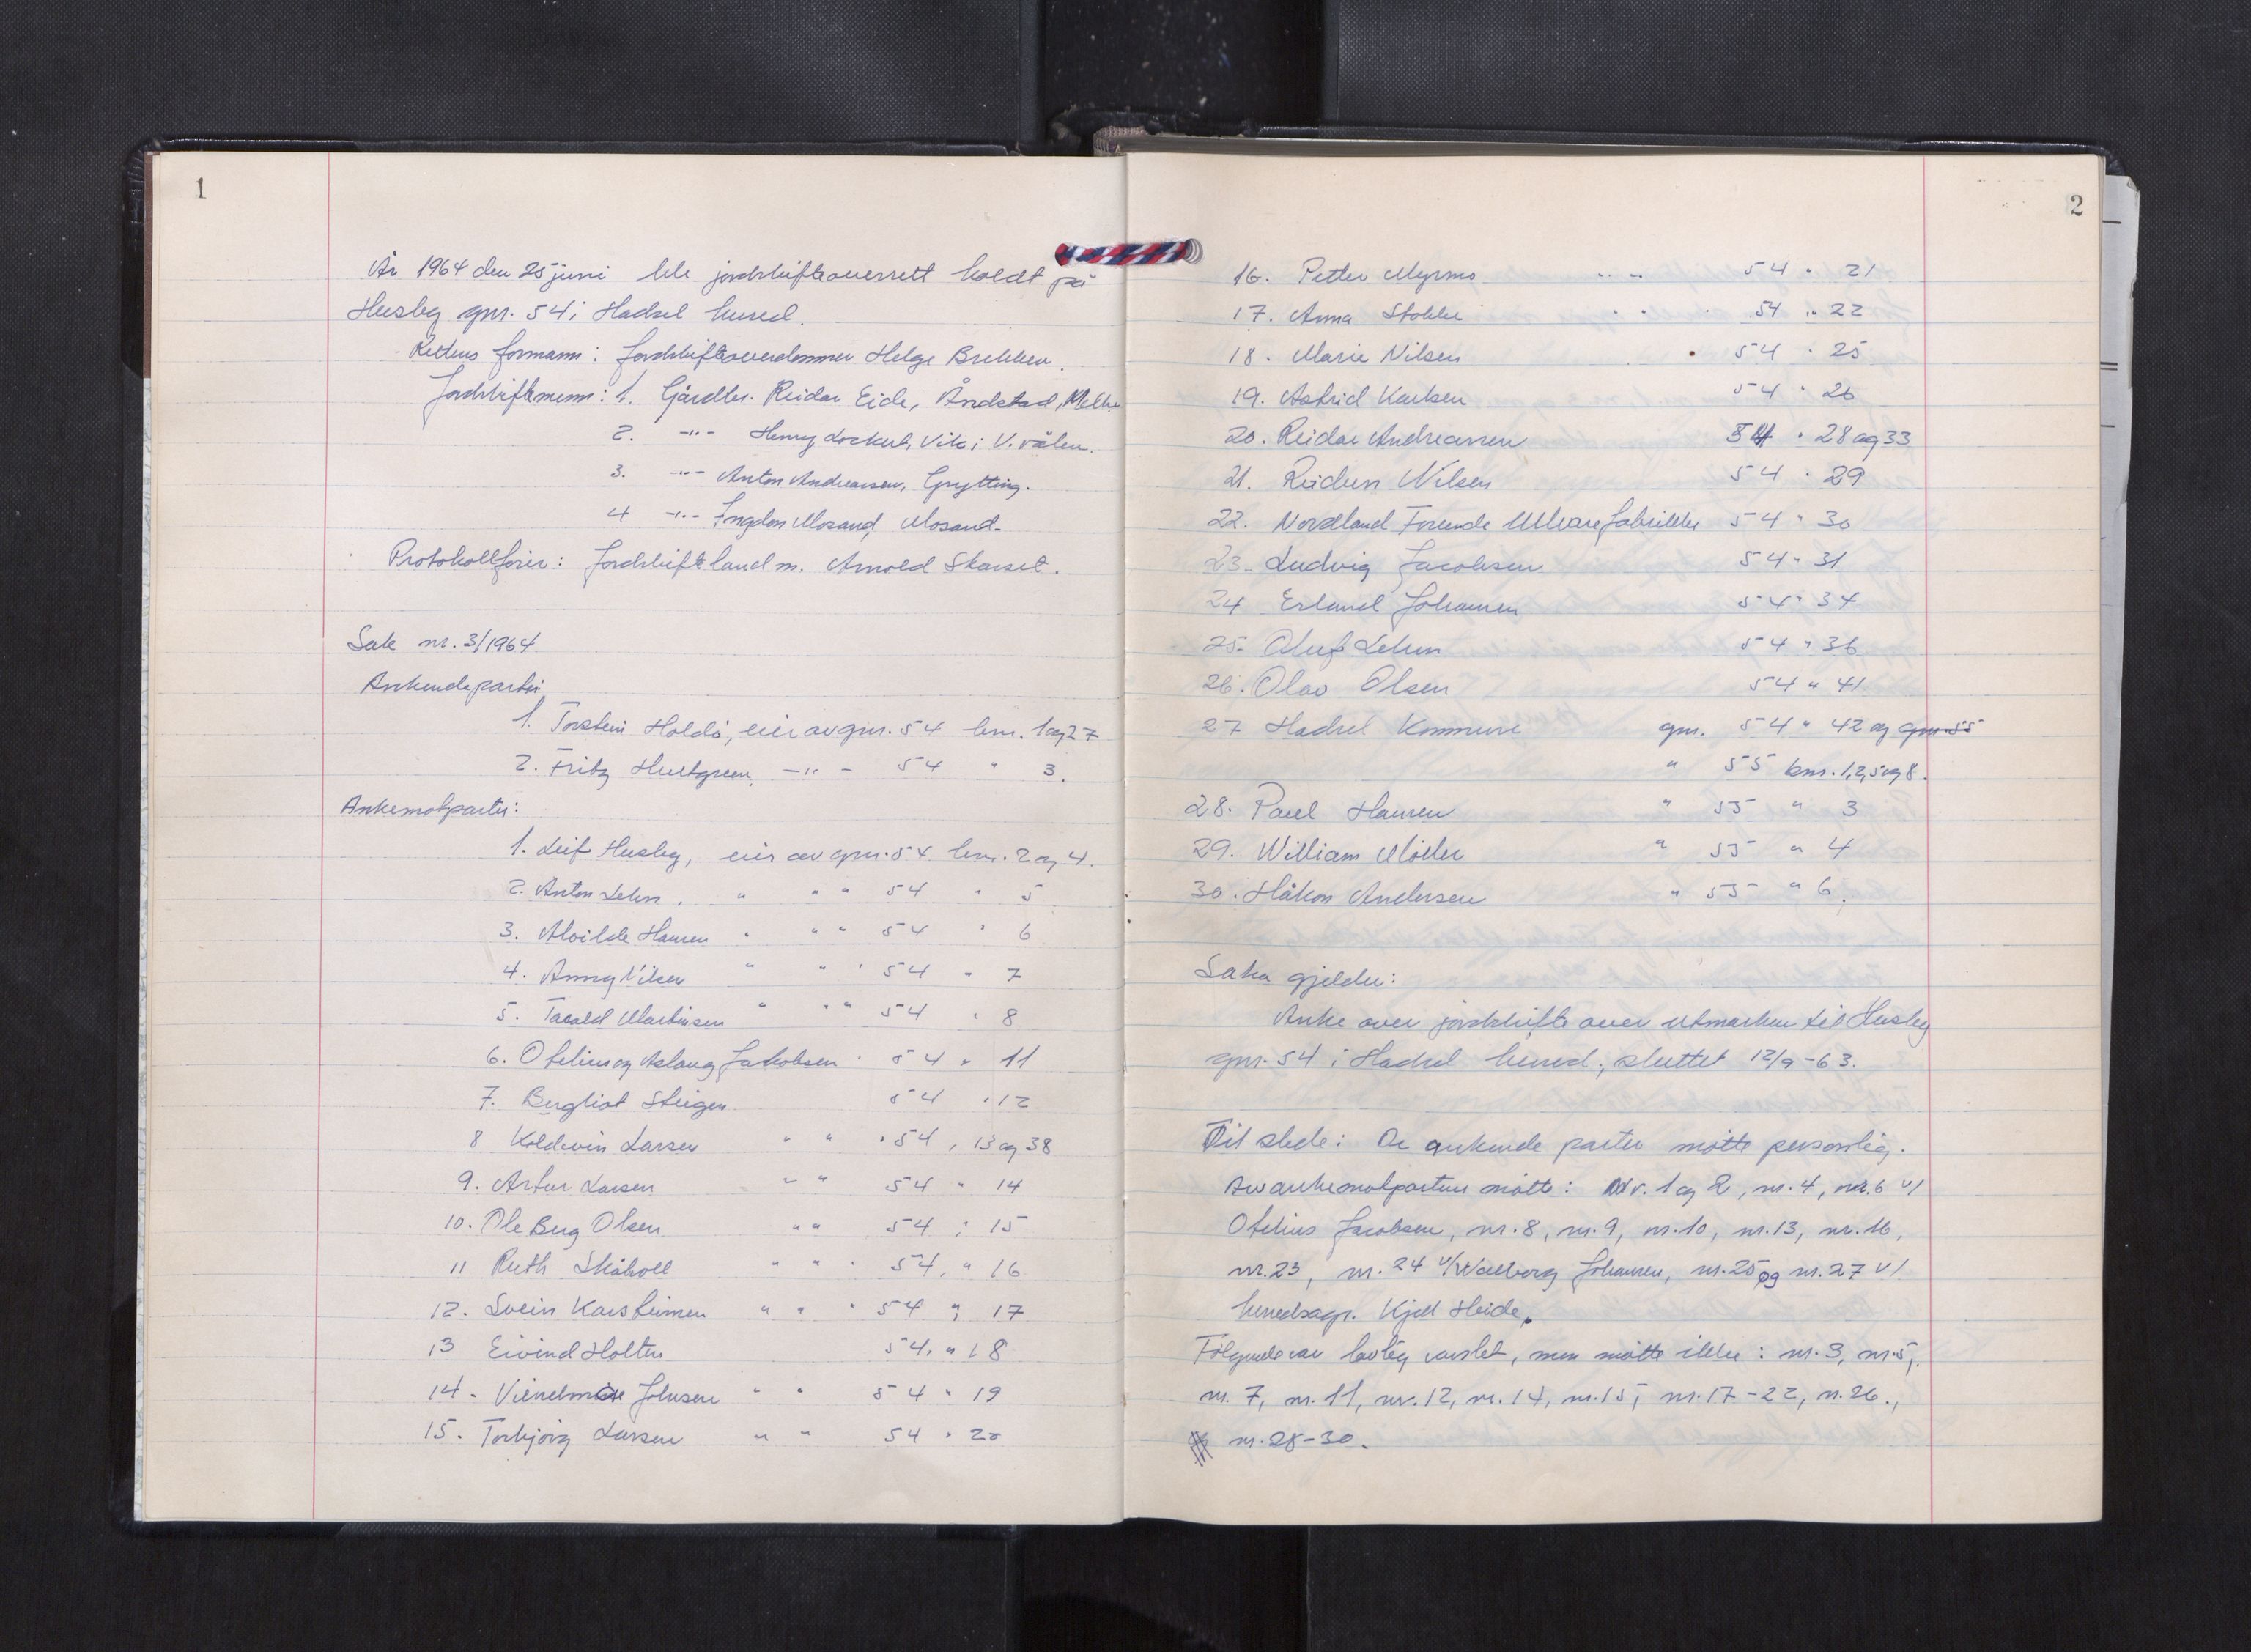 1
År 1964 den 25 juni ble jordskifteoverrett holdt på
Husby gnr. 54 i Hadsel herred.
Rettens formann: Jordskifteoverdommer Helge Brekken.
Jordskiftemenn: 1. Gårdbr. Reidar Eide, Åndstad, Melbu
2. -"- Henry Lockert, Vik i V.vålen.
3. -"- Anton Andreassen, Grytting.
4 -"- Ingolon Mosand, Mosand.
Protokollfører: Jordskiftelandm. Arnold Skarset.
Sak nr. 3/1964
Ankende parter
1. Torstein Holdø, eier av gnr. 54 bnr. 1 og 27
2. Fritz Hultgreen, -"- 54 " 3.
Ankemotparter:
1. Leif Husby, eier av gnr. 54 bnr. 2 og 4.
2. Anton Lehn, " " " 54 " 5
3. Alvilde Hansen " " " 54 " 6
4. Anny Nilsen " " " 54 " 7
5. Tarald Martinsen " " " 54 " 8
6. Otelius og Aslaug Jakobsen " 54 " 11
7. Bergliot Steigen 54 " 12
8 Koldevin Larsen " " " 54 " 13 og 38
9. Artur Larsen " " 54 " 14
10. Ole Berg Olsen " " 54 " 15
11 Ruth Skåholl " " " 54 " 16
12. Svein Karstensen " " " 54 " 17
13 Eivind Holten 54 " 18
14. Johnsen " " 54 " 19
15. Torbjørg Larsen " " 54 " 20
2
16. Petter Myrmo " " 54 " 21
17. Anna Stokke " " " 54 " 22
18. Marie Nilsen " 54 " 25
19. Astrid Karlsen 54 " 26
20. Reidar Andreassen 54 " 28 og 33
21. Reidun Nilsen 54 " 29
22. Nordland Forende Ullvarefabrikker 54 " 30
23. Ludvig Jacobsen 54 " 31
24 Erland Johansen 54 " 34
25. Oluf Lehn 54 " 36
26. Olav Olsen 54 " 41
27 Hadsel Kommune gnr. 54 " 42 og gnr. 55
" 55 bnr. 1, 2, 5 og 8.
28. Paul Hansen " 55 " 3
29. William Møller " 55 " 4
30. Håkon Andersen " 55 " 6.
Saka gjelder:
Anke over jordskifte over utmarken til Husby
gnr. 54 i Hadsel herred, sluttet 12/9-63.
Til stede: De ankende parter møtte personlig.
Av ankemotpartene møtte: Nr. 1 og 2, nr. 4, nr. 6 v/
Otelius Jacobsen, nr. 8, nr. 9, nr. 10, nr. 13, nr. 16,
nr. 23, nr. 24 v/Walborg Johansen, nr. 25 og nr. 27 v/
herredsagr. Kjell Heide.
Følgende var lovlig varslet, men møtte ikke: nr. 3, nr. 5,
nr. 7, nr. 11, nr. 12, nr. 14, nr. 15, nr. 17-22, nr. 26.,
nr. 28-30.